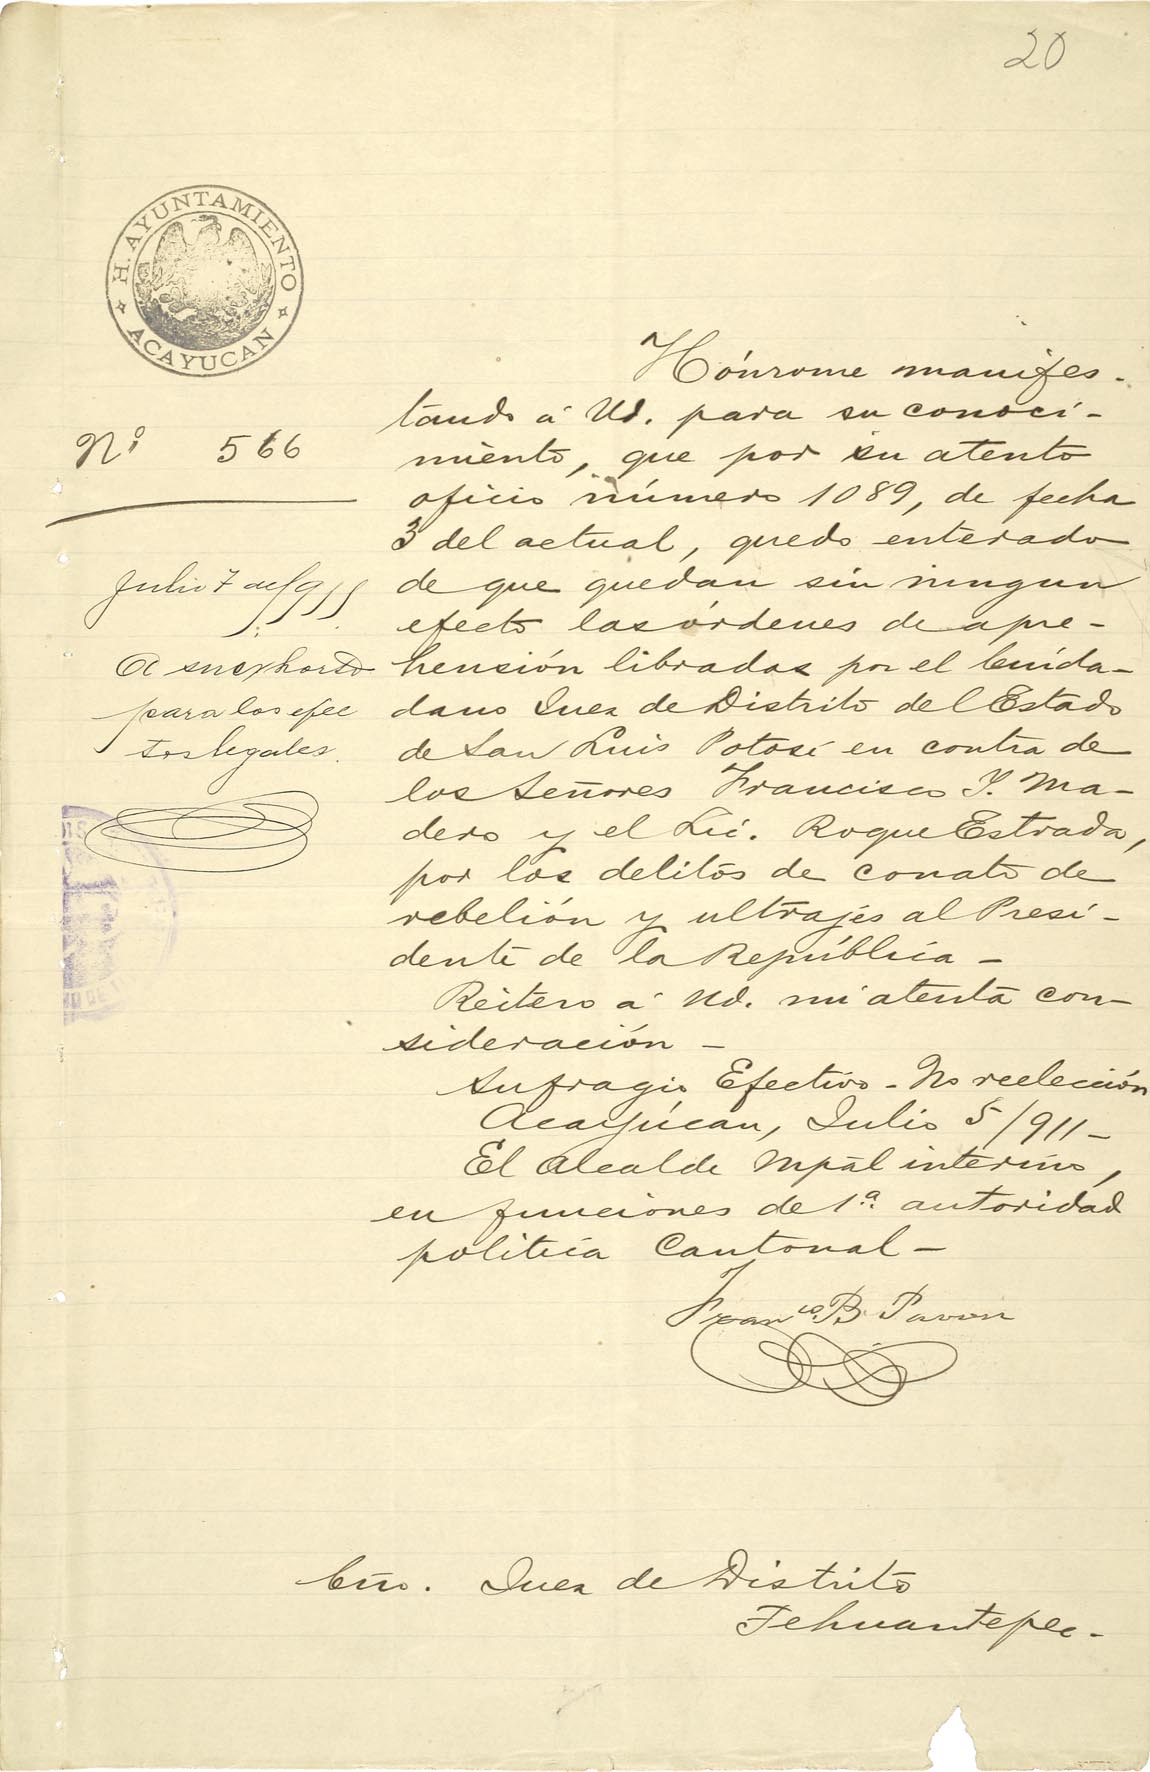 20
H. AYUNTAMIENTO
ACAYUCAN
Nº 566
Julio 7 de 1911
A su exhorto
para los efec
tos legales.
Hónrome manifes-
tando á Ud. para su conoci-
miento, que por su atento
oficio número 1089, de fecha
3 del actual, quedo enterado
de que quedan sin ningun
efecto las órdenes de apre-
hensión libradas por el Ciuda-
dano Juez de Distrito del Estado
de San Luis Potosí en contra de
los Señores Francisco I. Ma-
dero y el Lic. Roque Estrada,
por los delitos de conato de
rebelión y ultrajes al Presi-
dente de la República -
Reitero á Ud. mi atenta con-
sideración -
Sufragio Efectivo - No reelección
Acayúcan, Julio 5/911 -
El Alcalde Mpal interino,
en funciones de 1ª autoridad
politica Cantonal -
Franco B Pavon
Cno. Juez de Distrito
Tehuantepec -